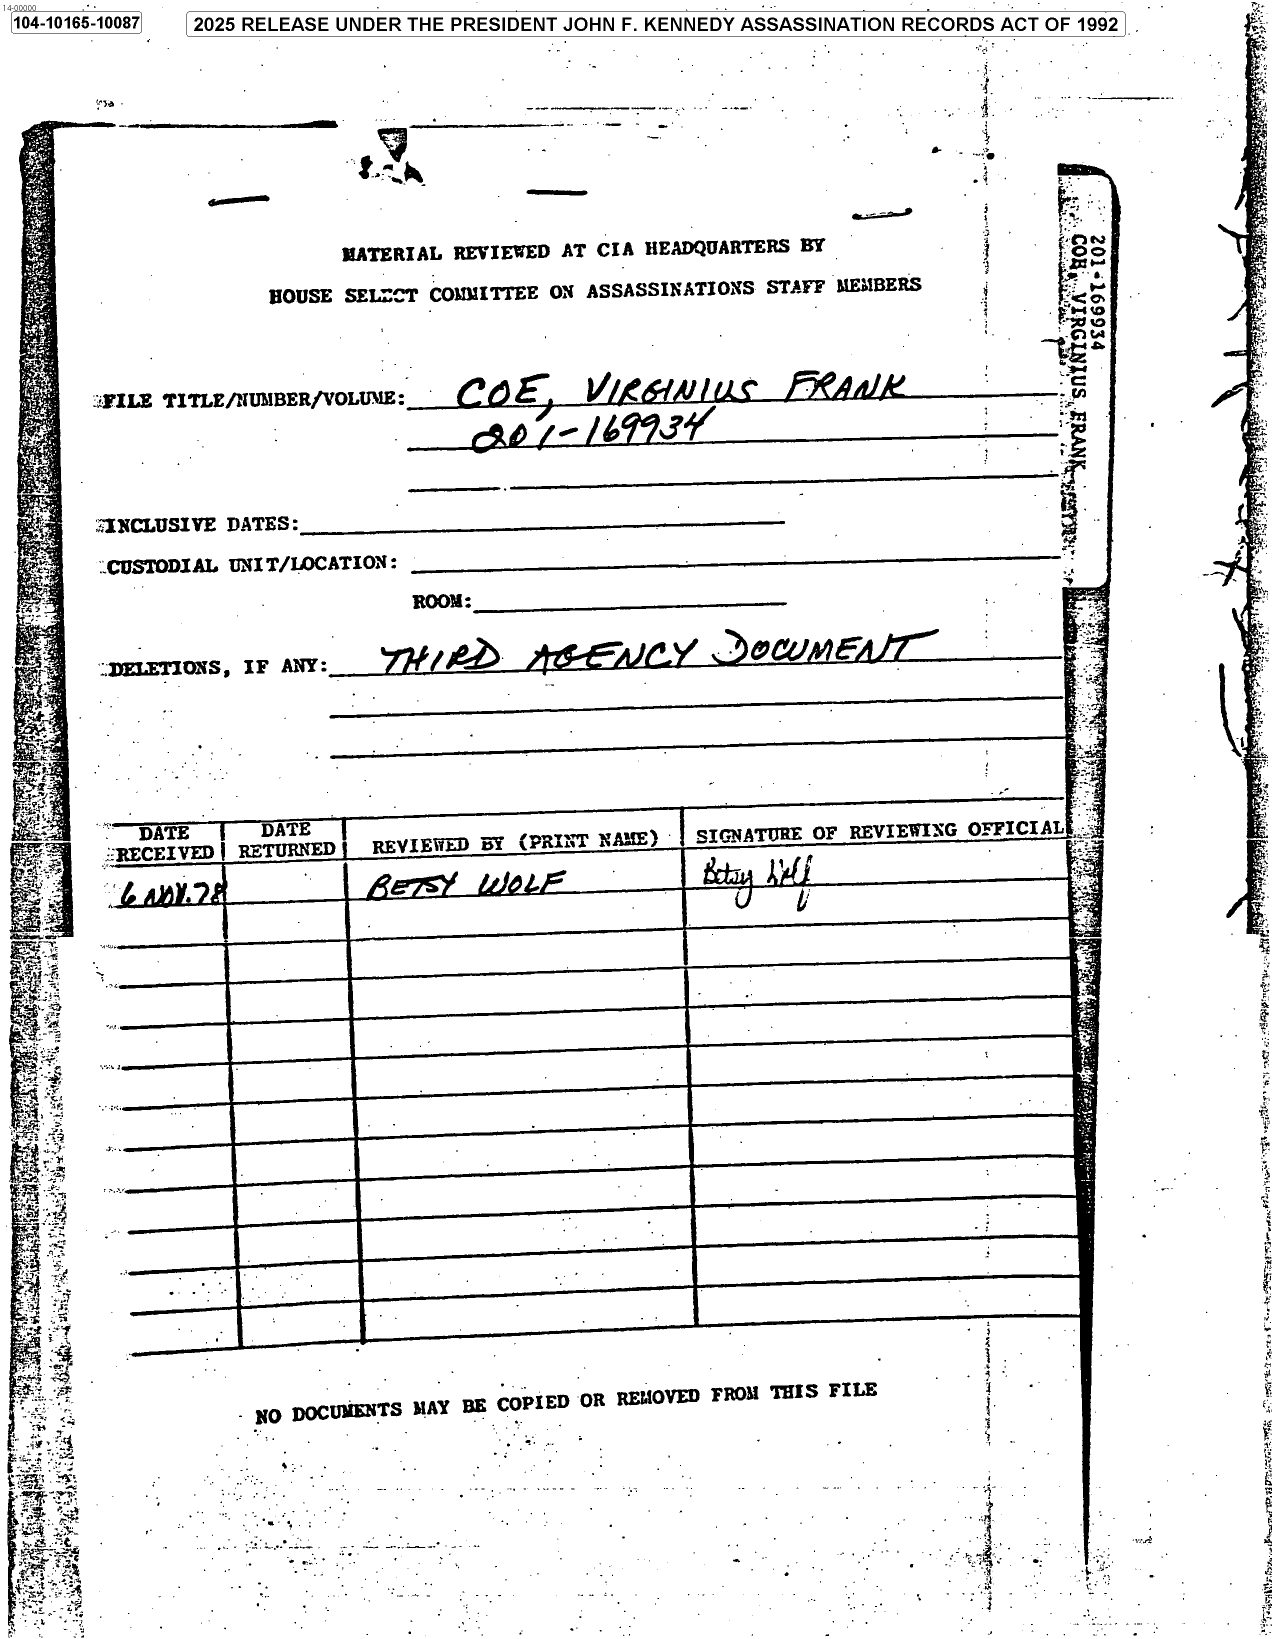 14-00000
104-10165-10087
2025 RELEASE UNDER THE PRESIDENT JOHN F. KENNEDY ASSASSINATION RECORDS ACT OF 1992
MATERIAL REVIEWED AT CIA HEADQUARTERS BY
HOUSE SELECT COMMITTEE ON ASSASSINATIONS STAFF MEMBERS
201-169934
COE, VIRGINIUS FRANK
FILE TITLE/NUMBER/VOLUME: COE, VIRGINIUS FRANK
201-169934
INCLUSIVE DATES:
CUSTODIAL UNIT/LOCATION:
ROOM:
DELETIONS, IF ANY: THIRD AGENCY DOCUMENT
DATE RECEIVED DATE RETURNED REVIEWED BY (PRINT NAME) SIGNATURE OF REVIEWING OFFICIAL
6 NOV. 78 BETSY WOLF Betsy Wolf
NO DOCUMENTS MAY BE COPIED OR REMOVED FROM THIS FILE